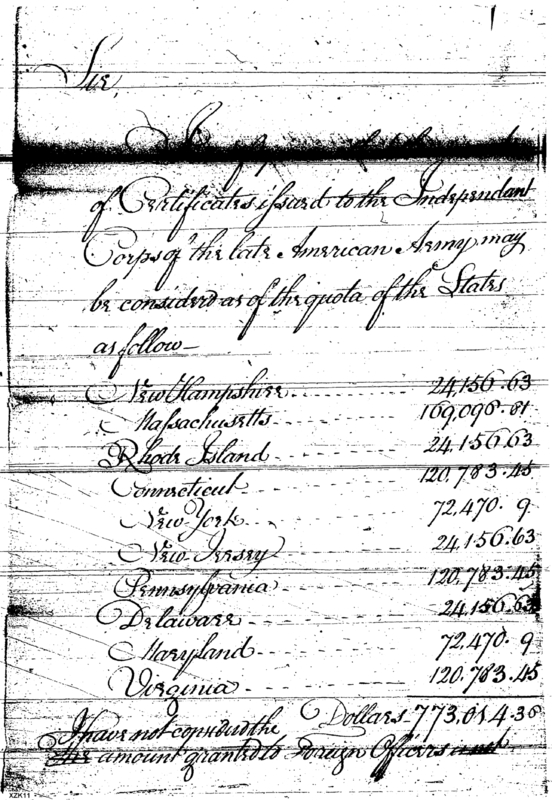 Sir,
of Certificates issued to the Independant
Corps of the late American Army may
be considerd as of the quota of the States
as follow—
New Hampshire 24,156.63
Massachusetts 169,096.81
Rhode Island 24,156.63
Connecticut 120,783.45
New York 72,470.9
New Jersey 24,156.63
Pennsylvania 120,783.45
Delaware 24,156.63
Maryland 72,470.9
Virginia 120,783.45
Dollars 773,014.36
I have not the
amount granted to Foreign Officers